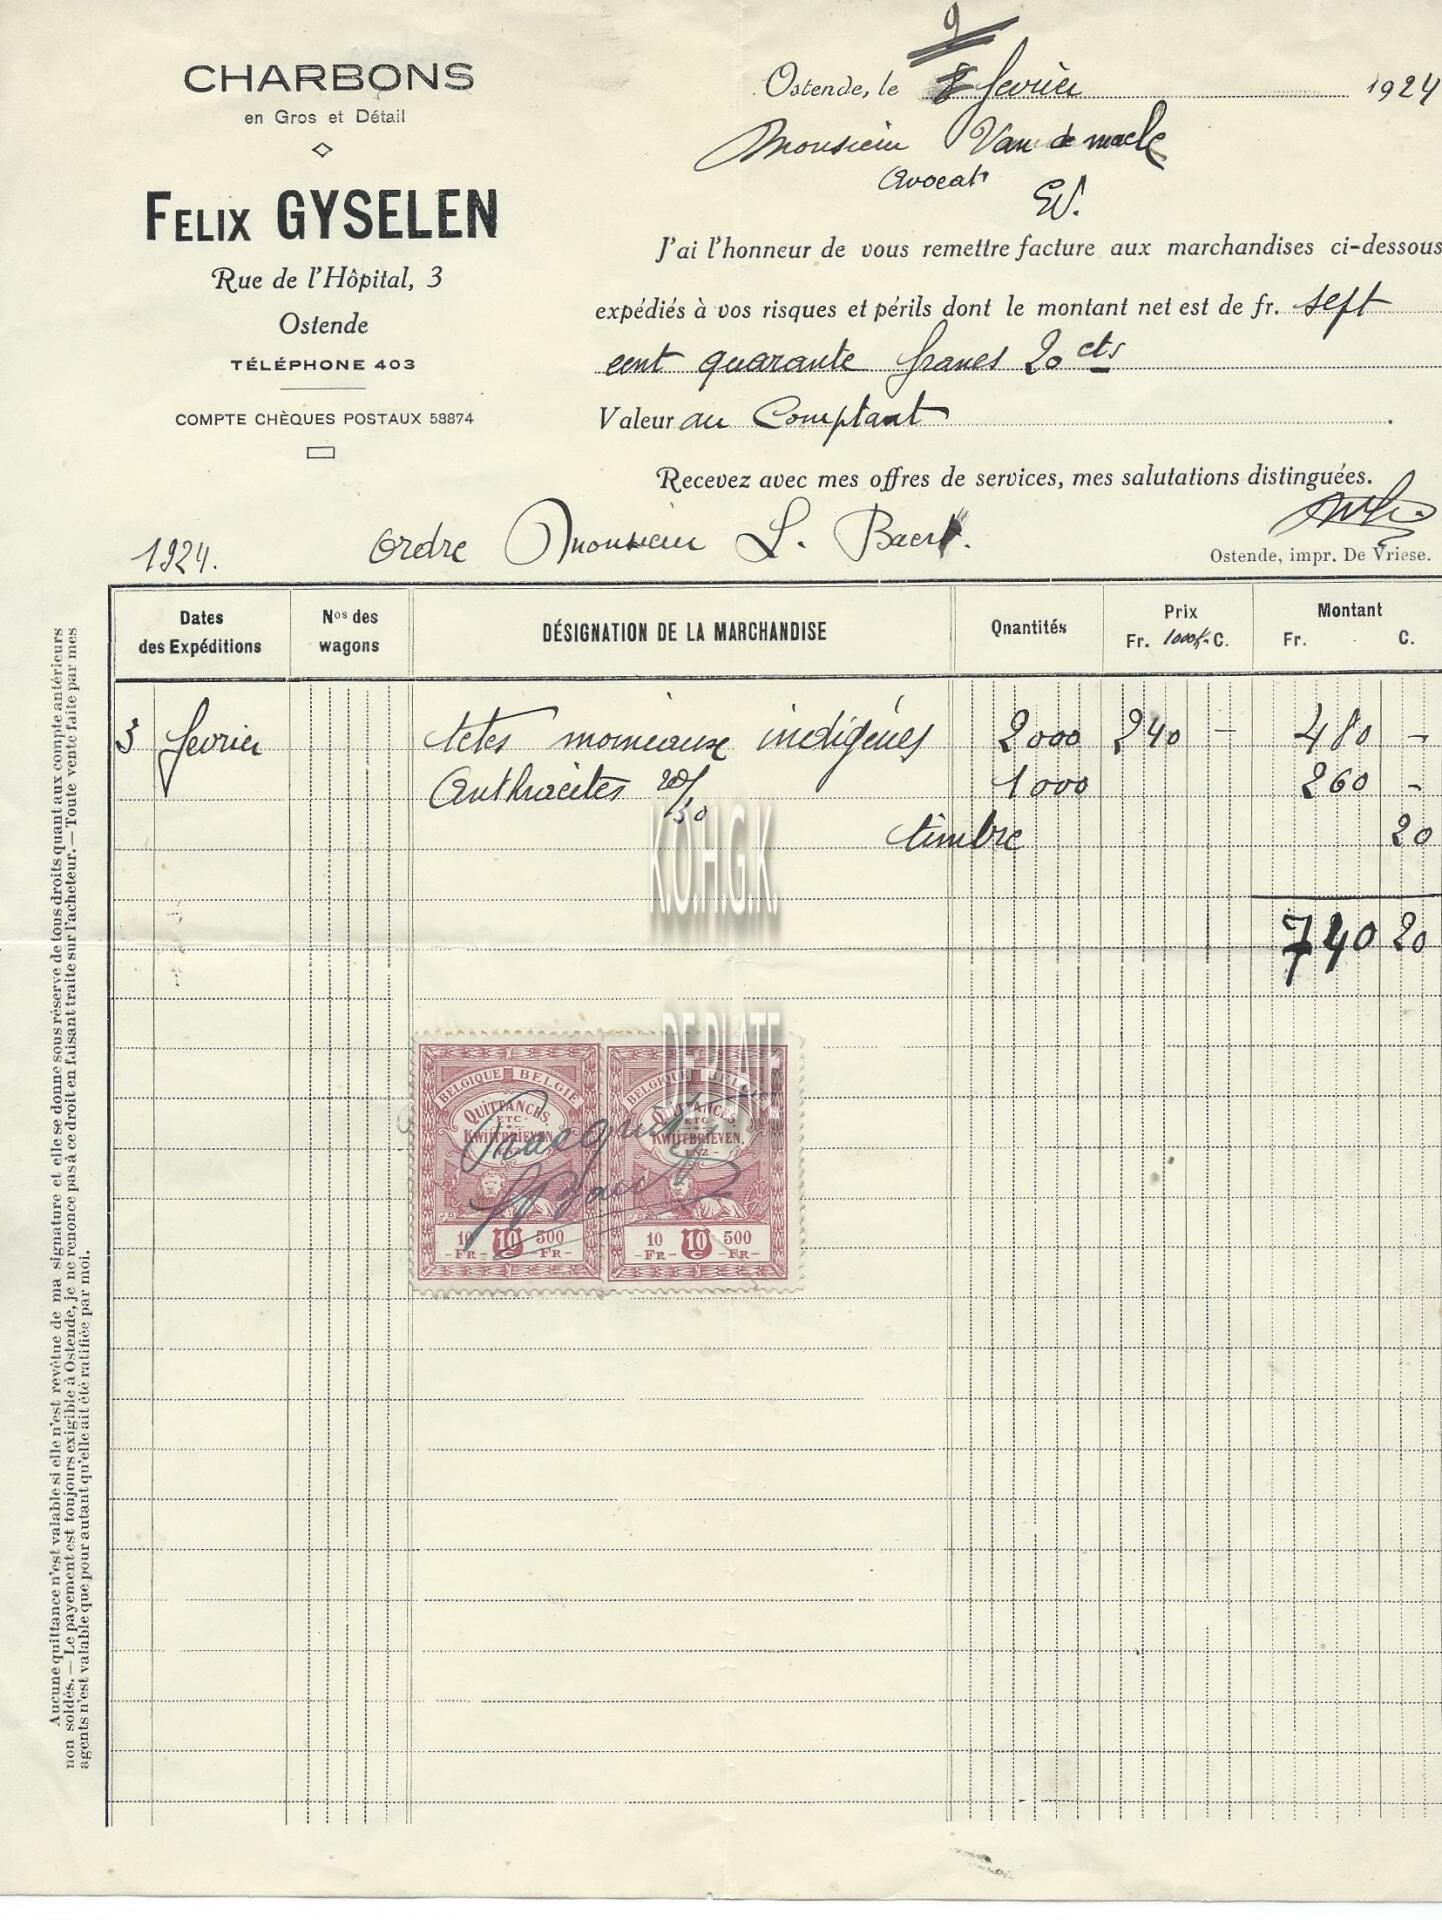 CHARBONS
en Gros et Détail
FELIX GYSELEN
Rue de l'Hôpital, 3
Ostende
TÉLÉPHONE 403
COMPTE CHÈQUES POSTAUX 58874
9
Ostende, le fevrier 1924
Monsieur Van de maele
Avocat
EV.
J'ai l'honneur de vous remettre facture aux marchandises ci-dessous
expédiés à vos risques et périls dont le montant net est de fr. sept
cent quarante francs 20 cts
Valeur au Comptant .
Recevez avec mes offres de services, mes salutations distinguées.
1924. Ordre Monsieur L. Baert.
Ostende, impr. De Vriese.
Dates des Expéditions Nos des wagons DÉSIGNATION DE LA MARCHANDISE Qnantités Prix Fr. 1000k. C. Montant Fr. C.
3 fevrier tetes moineaux indigénes 2000 240 - 480 -
Anthracites 20/30 1000 260 -
timbre 20
740 20
K.O.H.G.K.
DE PLATE
BELGIQUE BELGIË BELGIQUE BELGIË
QUITTANCES, ETC - QUITTANCES, ETC -
KWIJTBRIEVEN, KWIJTBRIEVEN, ENZ -
10 FR - 10 C - 500 FR - 10 FR - 10 C - 500 FR -
L Baert
Aucune quittance n'est valable si elle n'est revêtue de ma signature et elle se donne sous réserve de tous droits quant aux compte antérieurs
non soldés. — Le payement est toujours exigible à Ostende, je ne renonce pas à ce droit en faisant traite sur l'acheteur. — Toute vente faite par mes
agents n'est valable que pour autant qu'elle ait été ratifiée par moi.